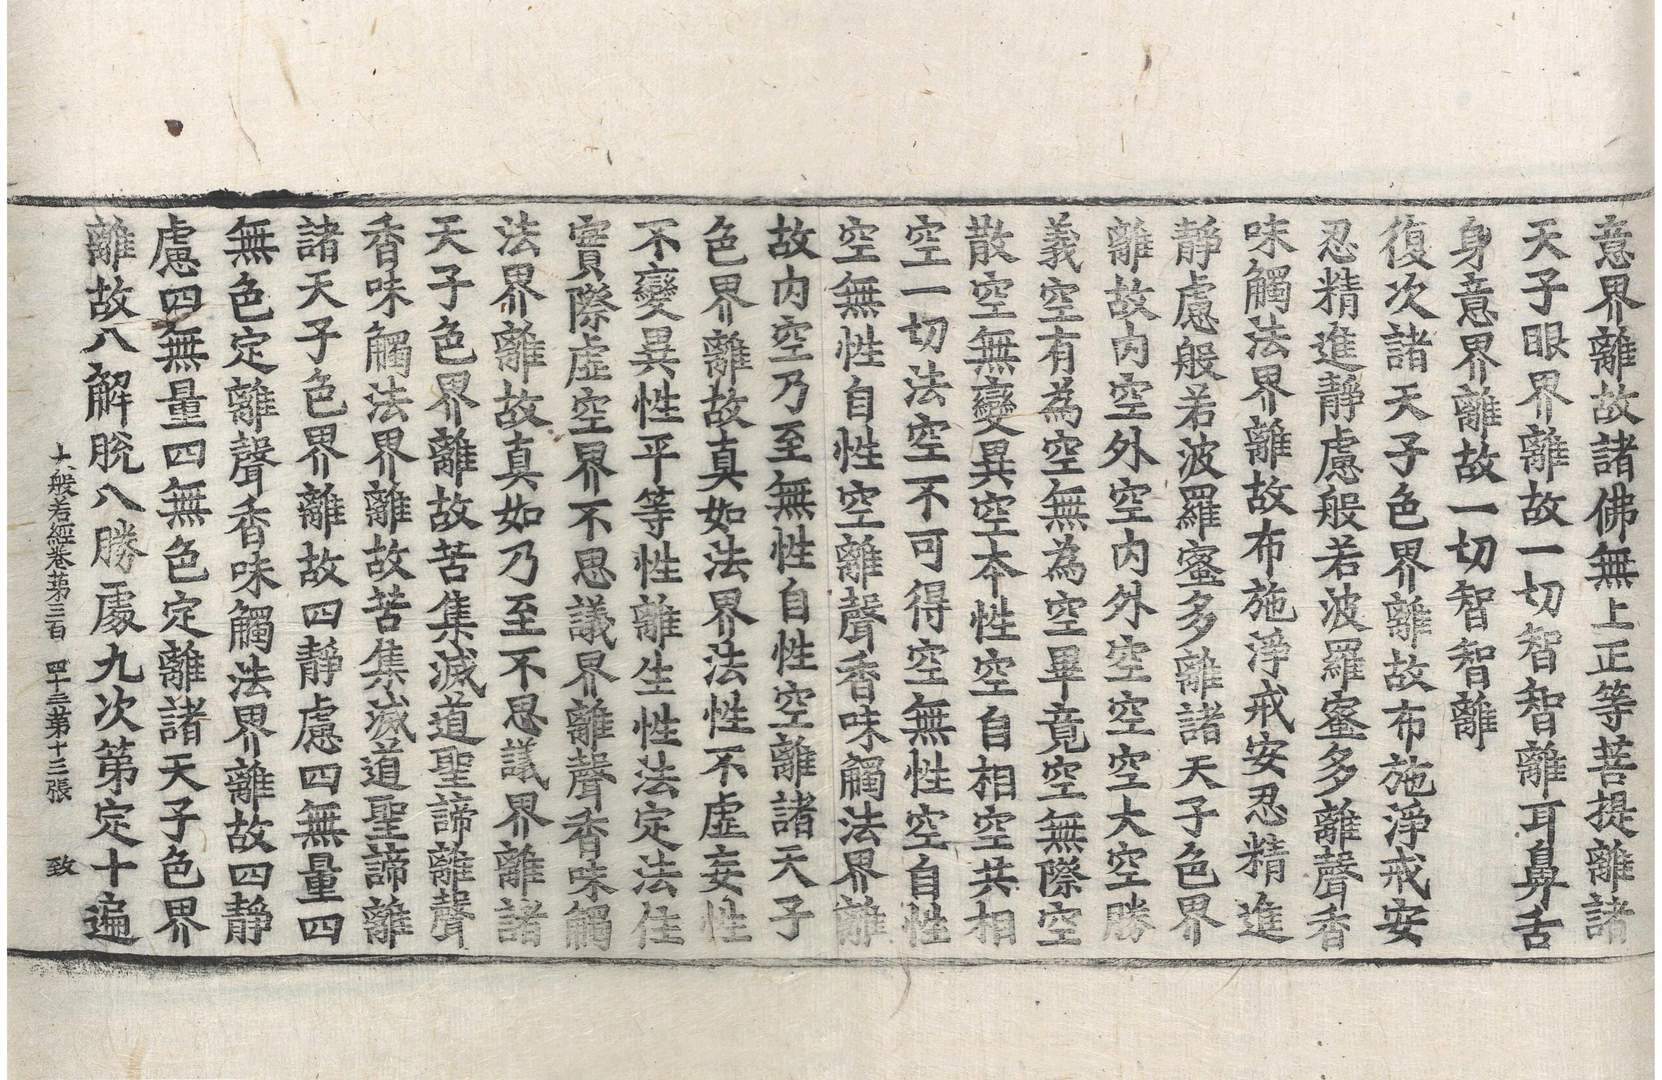 意界離故諸佛無上正等菩提離諸
天子眼界離故一切智智離耳鼻舌
身意界離故一切智智離
復次諸天子色界離故布施淨戒安
忍精進靜慮般若波羅蜜多離聲香
味觸法界離故布施淨戒安忍精進
靜慮般若波羅蜜多離諸天子色界
離故內空外空內外空空空大空勝
義空有為空無為空畢竟空無際空
散空無變異空本性空自相空共相
空一切法空不可得空無性空自性
空無性自性空離聲香味觸法界離
故內空乃至無性自性空離諸天子
色界離故真如法界法性不虛妄性
不變異性平等性離生性法定法住
實際虛空界不思議界離聲香味觸
法界離故真如乃至不思議界離諸
天子色界離故苦集滅道聖諦離聲
香味觸法界離故苦集滅道聖諦離
諸天子色界離故四靜慮四無量四
無色定離聲香味觸法界離故四靜
慮四無量四無色定離諸天子色界
離故八解脫八勝處九次第定十遍
大般若經卷第三百 四十三第十三張 致